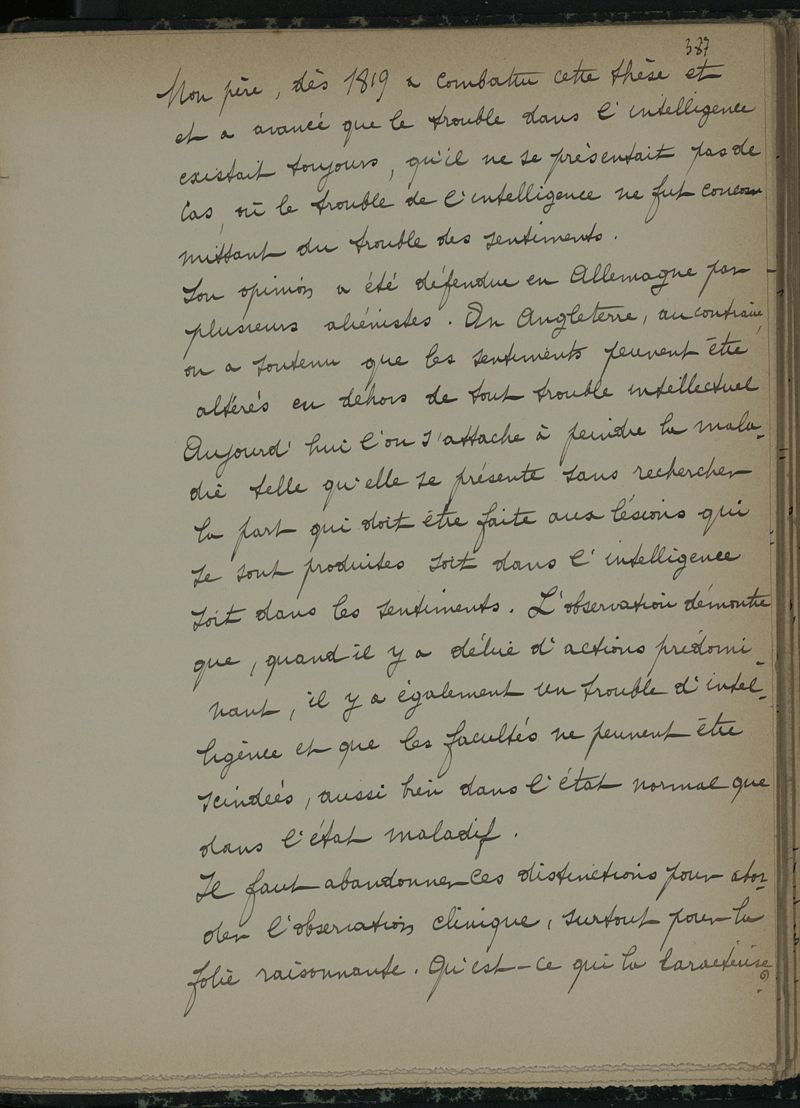 387
Mon père, dès 1819 a combattu cette thèse et
et a avancé que le trouble dans l'intelligence
existait toujours, qu'il ne se présentait pas de
cas, où le trouble de l'intelligence ne fut concom
mittant du trouble des sentiments.
Son opinion a été défendue en Allemagne par
plusieurs aliénistes. En Angleterre, au contraire,
on a soutenu que les sentiments peuvent être
altérés en dehors de tout trouble intellectuel
Aujourd'hui l'on s'attache à peindre la mala-
die telle qu'elle se présente sans rechercher
la part qui doit être faite aux lésions qui
se sont produites soit dans l'intelligence
soit dans les sentiments. L'observation démontre
que, quand il y a délire d'actions prédomi-
nant, il y a également un trouble d'intel-
ligence et que les facultés ne peuvent être
scindées, aussi bien dans l'état normal que
dans l'état maladif.
Il faut abandonner ces distinctions pour abor-
der l'observation clinique, surtout pour la
folie raisonnante. Qu'est-ce qui la caractérise?